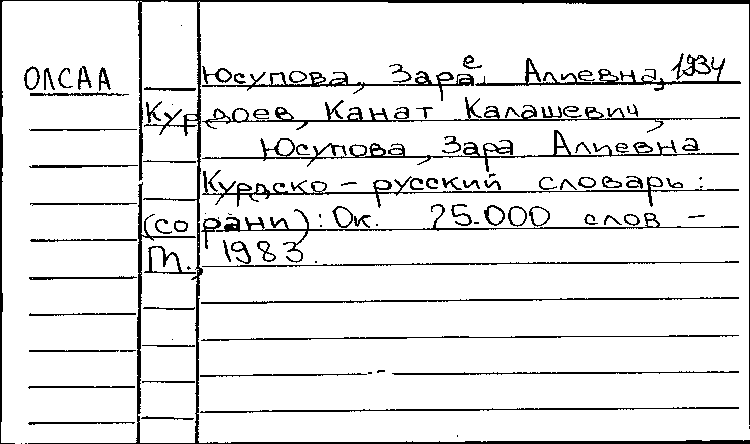 ОЛСАА Юсупова, Заре Алиевна, 1934
Курдоев, Канат Калашевич,
Юсупова, Зара Алиевна
Курдско-русский словарь:
(сорани): Ок. 25.000 слов -
М., 1983.